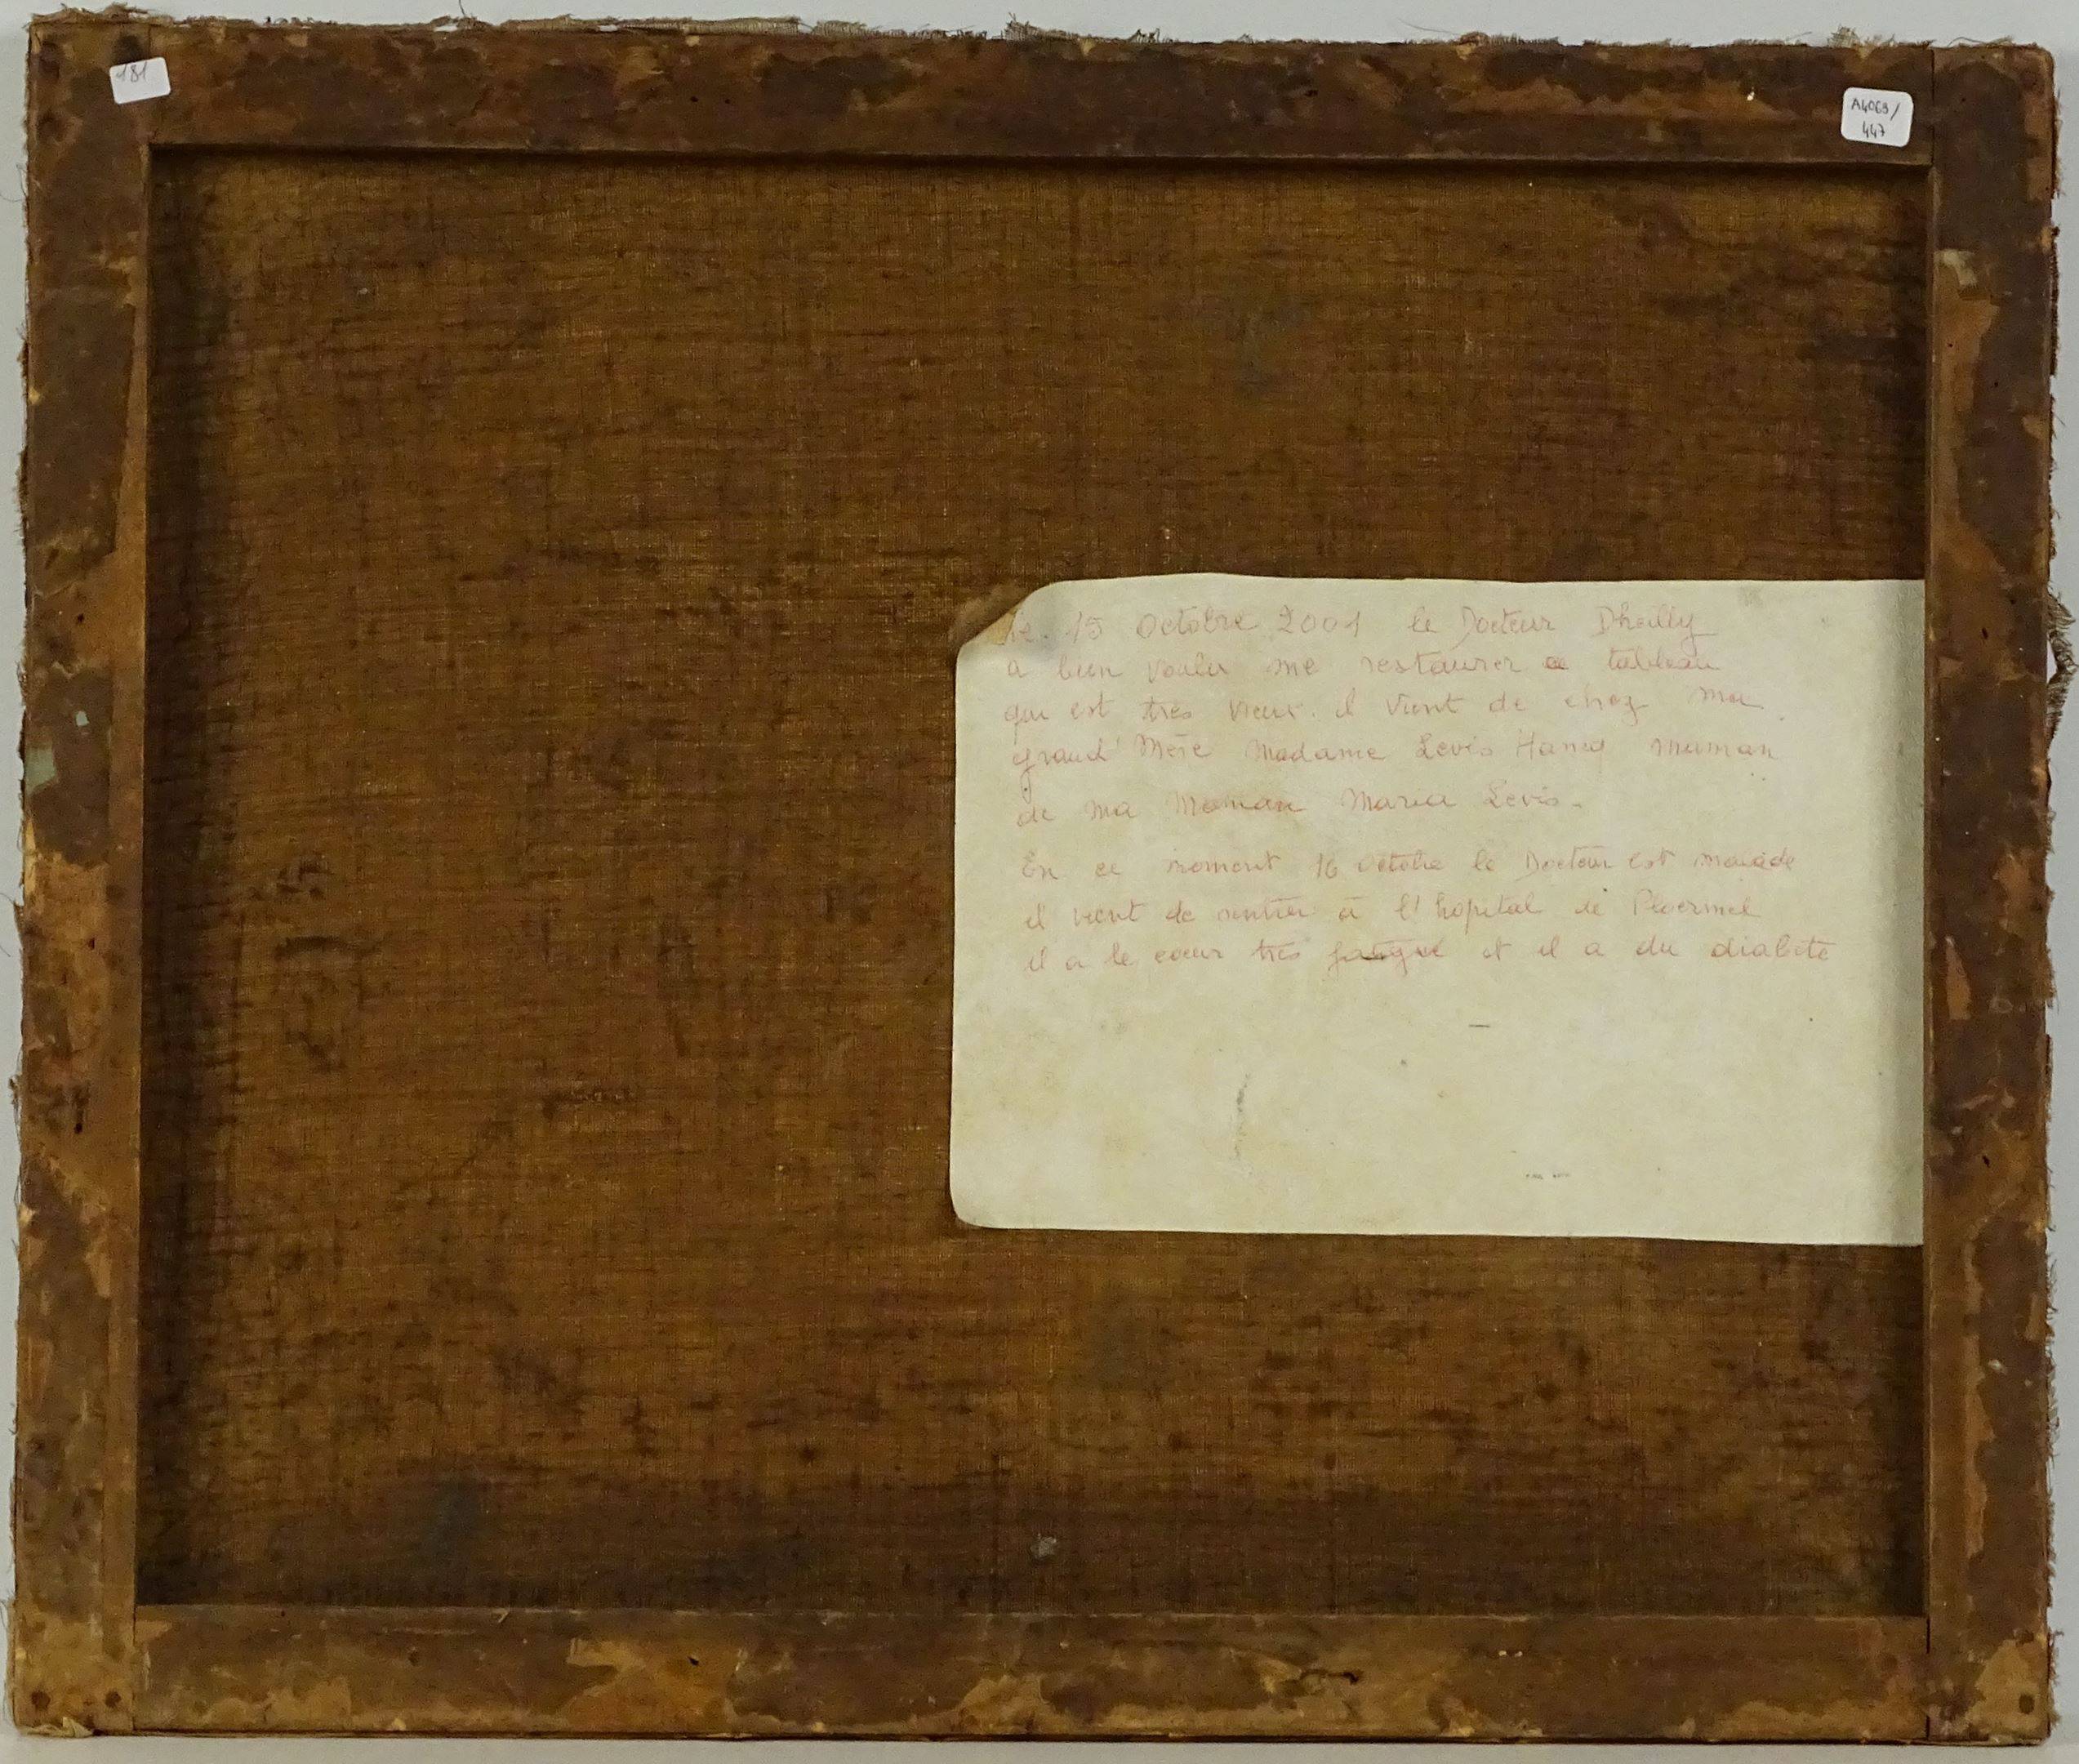 181
A4069/
447
Le 15 Octobre 2001 le Docteur Dheilly
a bien voulu me restaurer ce tableau
qui est très vieux. il vient de chez ma
grand' Mère Madame Levis maman
de ma Maman Maria Levis.
En ce moment 16 octobre le Docteur est malade
il vient de rentrer à l'hopital de Ploermel
il a le cœur très fatigué et il a du diabète